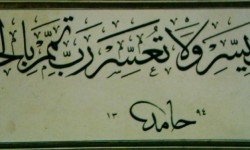 يسِّر وَلَا تُعَسِّرْ رَبِّ تَمِّمْ بِالخ
١٣ حامد ٩٤